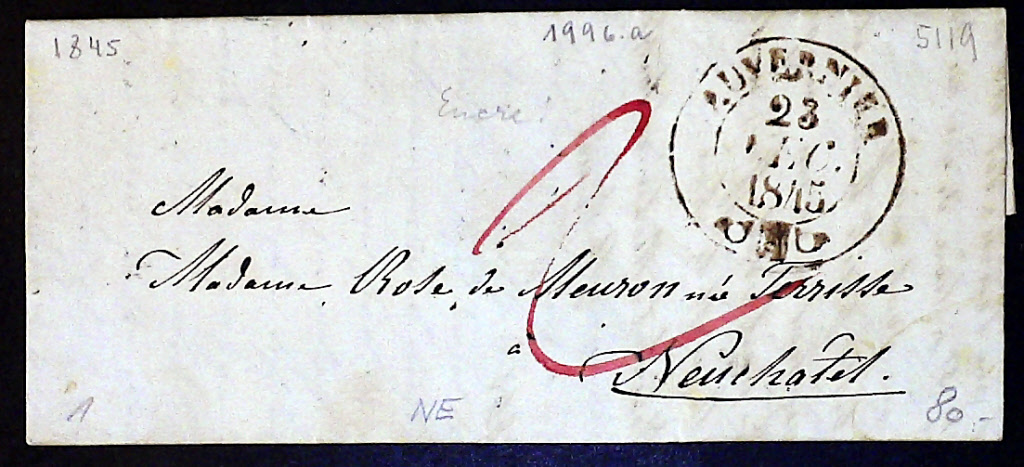 1845
1996.a
5119
Encre!
AUVERNIER
23
DEC.
1845
2
Madame
Madame Rose de Meuron née Terrisse
a
Neuchatel.
1
NE
80.-